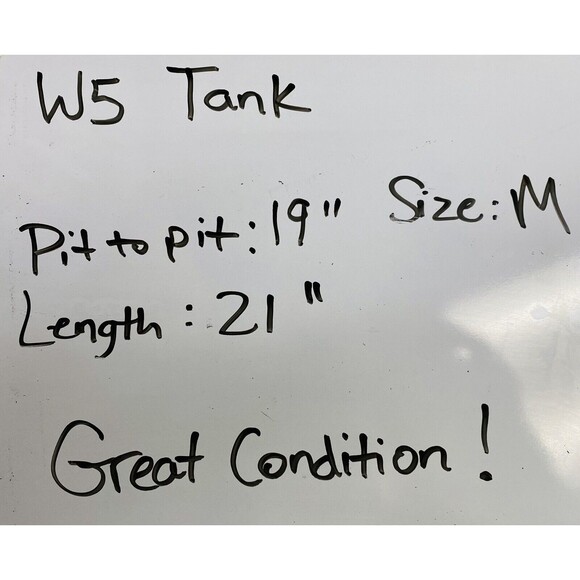 W5 Tank
Size: M
Pit to pit: 19"
Length: 21"
Great Condition!